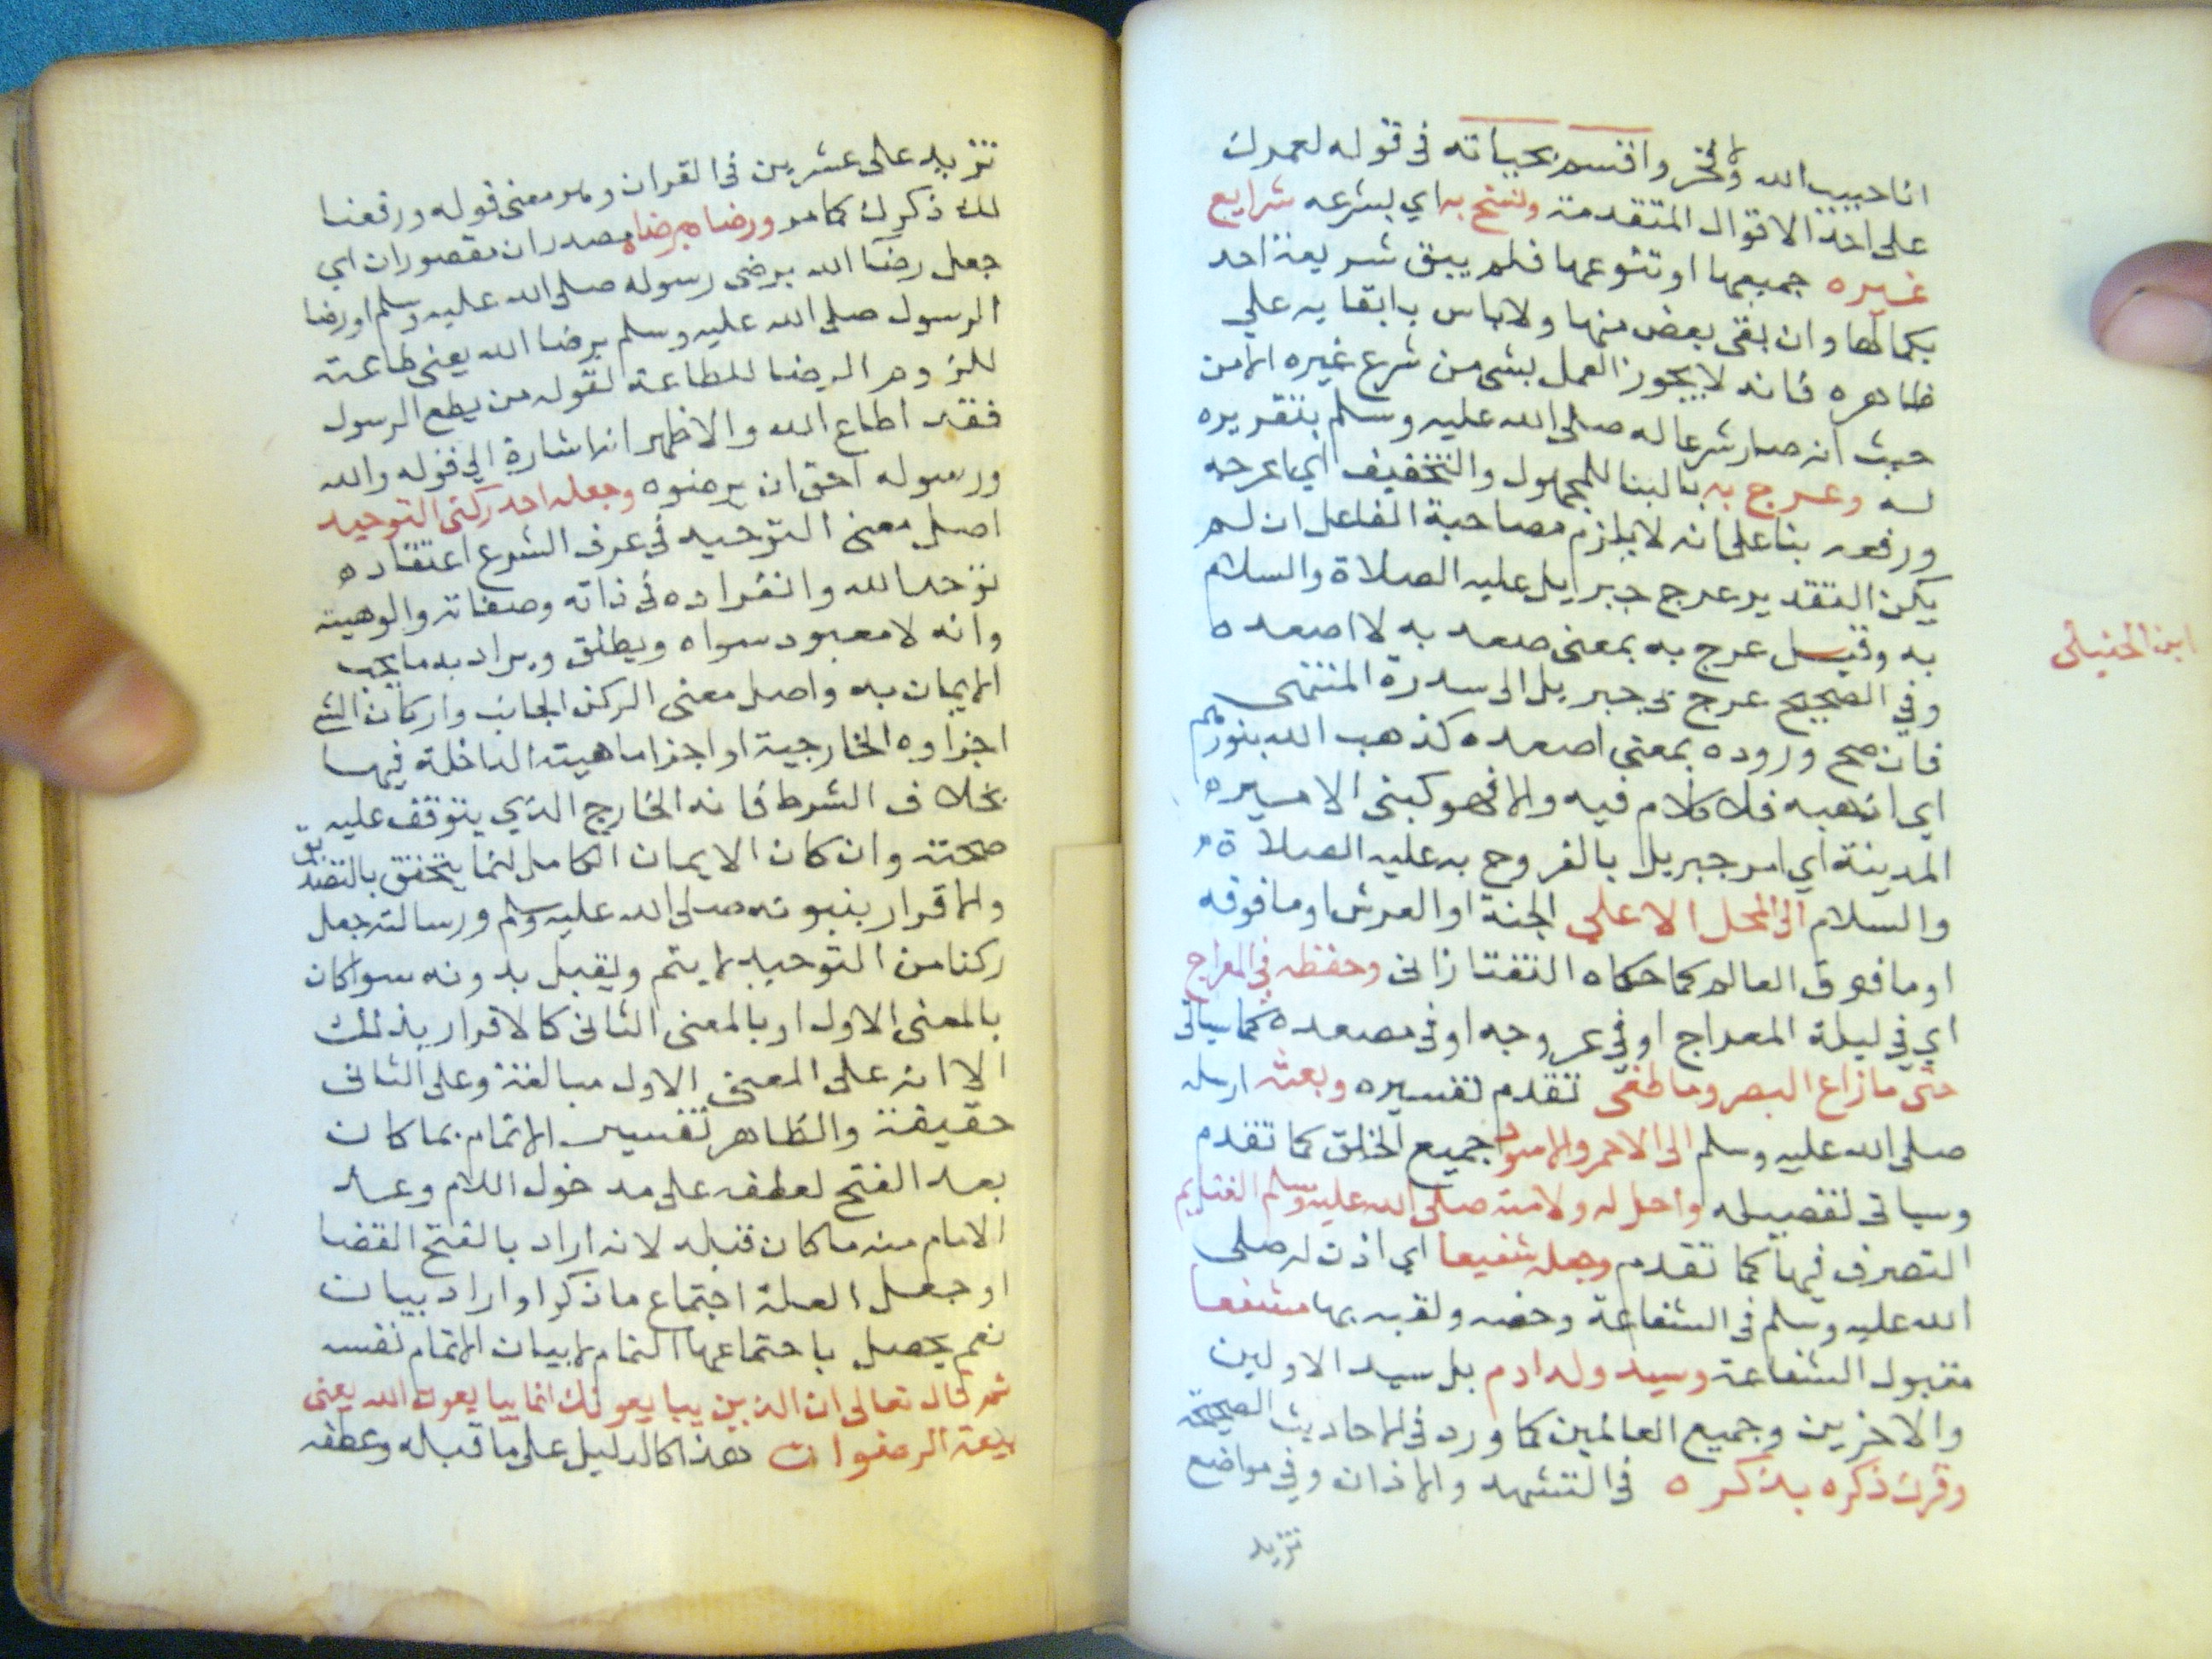 انا حبيب الله ولا فخر واقسم بحياته في قوله لعمرك
على احد الاقوال المتقدمة ونسخ به اي بشرعه شرايع
غيره جميعها او تنوعها فلم يبق شريعة احد
بكمالها وان بقى بعض منها ولا باس بابقايه علي
ظاهره فانه لا يجوز العمل بشى من شرع غيره الا من
حيث انه صار شرعا له صلى الله عليه وسلم بتقريره
له وعرج به بالبنا للمجهول والتخفيف اي ما عرجه
ورفعه بنا على انه لا يلزم مصاحبة الفاعل ان لم
يكن التقدير عرج جبرايل عليه الصلاة والسلام
به وقيل عرج به بمعنى صعد به لا اصعده
وفي الصحيح عرج بى جبريل الى سدرة المنتهى
فان صح وروده بمعنى اصعده كذهب الله بنورهم
اي اذهبه فلا كلام فيه والا فهو كبنى الامير
المدينة اي امر جبريل بالعروج به عليه الصلاة
والسلام الى المحل الاعلي الجنة او العرش او ما فوقه
او ما فوق العالم كما حكاه التفتازانى وحفظه في المعراج
اي في ليلة المعراج او في عروجه او في مصعده كما سياتى
حتى ما زاغ البصر وما طغى تقدم تفسيره وبعثه ارسله
صلى الله عليه وسلم الى الاحمر والاسود جميع الخلق كما تقدم
وسياتى تفصيله واحل له ولامته صلى الله عليه وسلم الغنايم
التصرف فيها كما تقدم وجعله شفيعا اي اذن له صلى
الله عليه وسلم في الشفاعة وخصه ولقبه بها مشفعا
مقبول الشفاعة وسيد ولد ادم بل سيد الاولين
والاخرين وجميع العالمين كما ورد في الاحاديث الصحيحة
وقرن ذكره بذكره في التشهد والاذان وفي مواضع
تزيد
تزيد على عشرين في القران ومر معنى قوله ورفعنا
لك ذكرك كما مر ورضاه برضاه مصدران مقصوران اي
جعل رضا الله برضى رسوله صلى الله عليه وسلم او رضا
الرسول صلى الله عليه وسلم برضا الله يعنى طاعته
للزوم الرضا للطاعة لقوله من يطع الرسول
فقد اطاع الله والاظهر انها شارة الي قوله والله
ورسوله احق ان يرضوه وجعله احد ركنى التوحيد
اصل معنى التوحيد في عرف الشرع اعتقاده
توحد الله وانفراده في ذاته وصفاته والوهيته
وانه لا معبود سواه ويطلق ويراد به ما يجب
الايمان به واصل معنى الركن الجانب واركان الشي
اجزاوه الخارجية او اجزا ماهيته الداخلة فيها
بخلاف الشرط فانه الخارج الذي يتوقف عليه
صحته وان كان الايمان الكامل انما يتحقق بالتصديق
والاقرار بنبوته صلى الله عليه وسلم ورسالته جعل
ركنا من التوحيد لا يتم ويقبل بدونه سوا كان
بالمعنى الاول او بالمعنى الثانى كالاقرار بذلك
الا انه على المعنى الاول مبالغة وعلى الثانى
حقيقة والظاهر تفسير الاتمام بما كان
بعد الفتح لعطفه على مدخول اللام وعد
الامام منه ما كان قبله لانه اراد بالفتح القضا
او جعل العلة اجتماع ما ذكر او اراد بيان
نعم يحصل باجتماعها التمام لا بيان الاتمام نفسه
ثم قال تعالى ان الذين يبايعونك انما يبايعون الله يعنى
بيعة الرضوان هذا كالدليل على ما قبله وعطفه